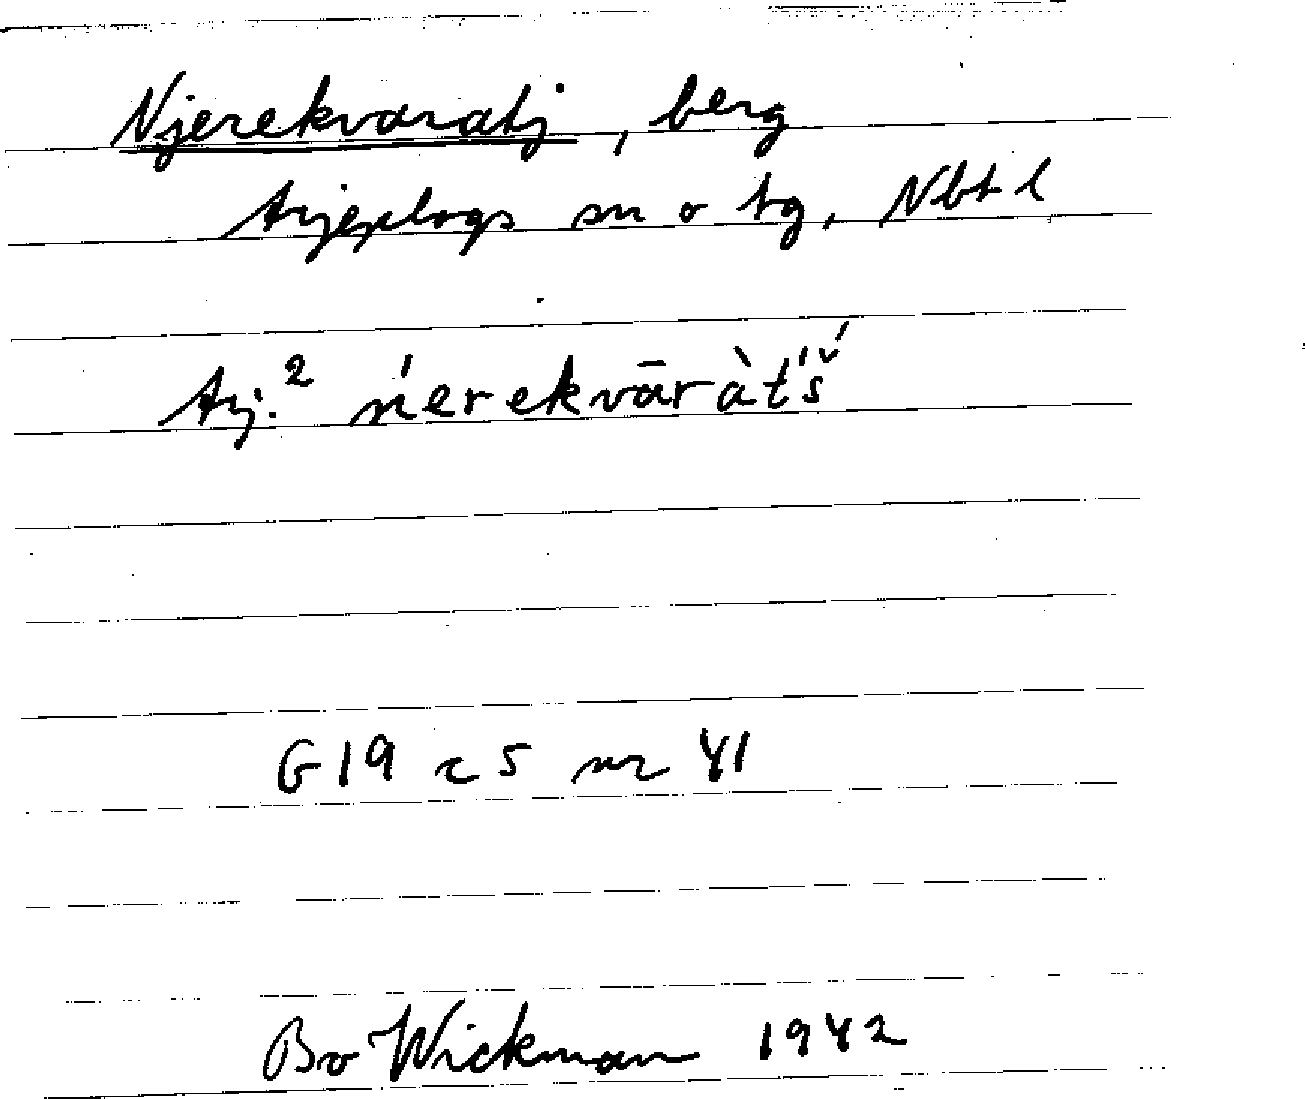 Njerekvaratj, berg
Arjeplogs sn o tg, Nbt l
Arj.² ńerekvāràt́š́
G19 c 5 nr 41
Bo Wickman 1942